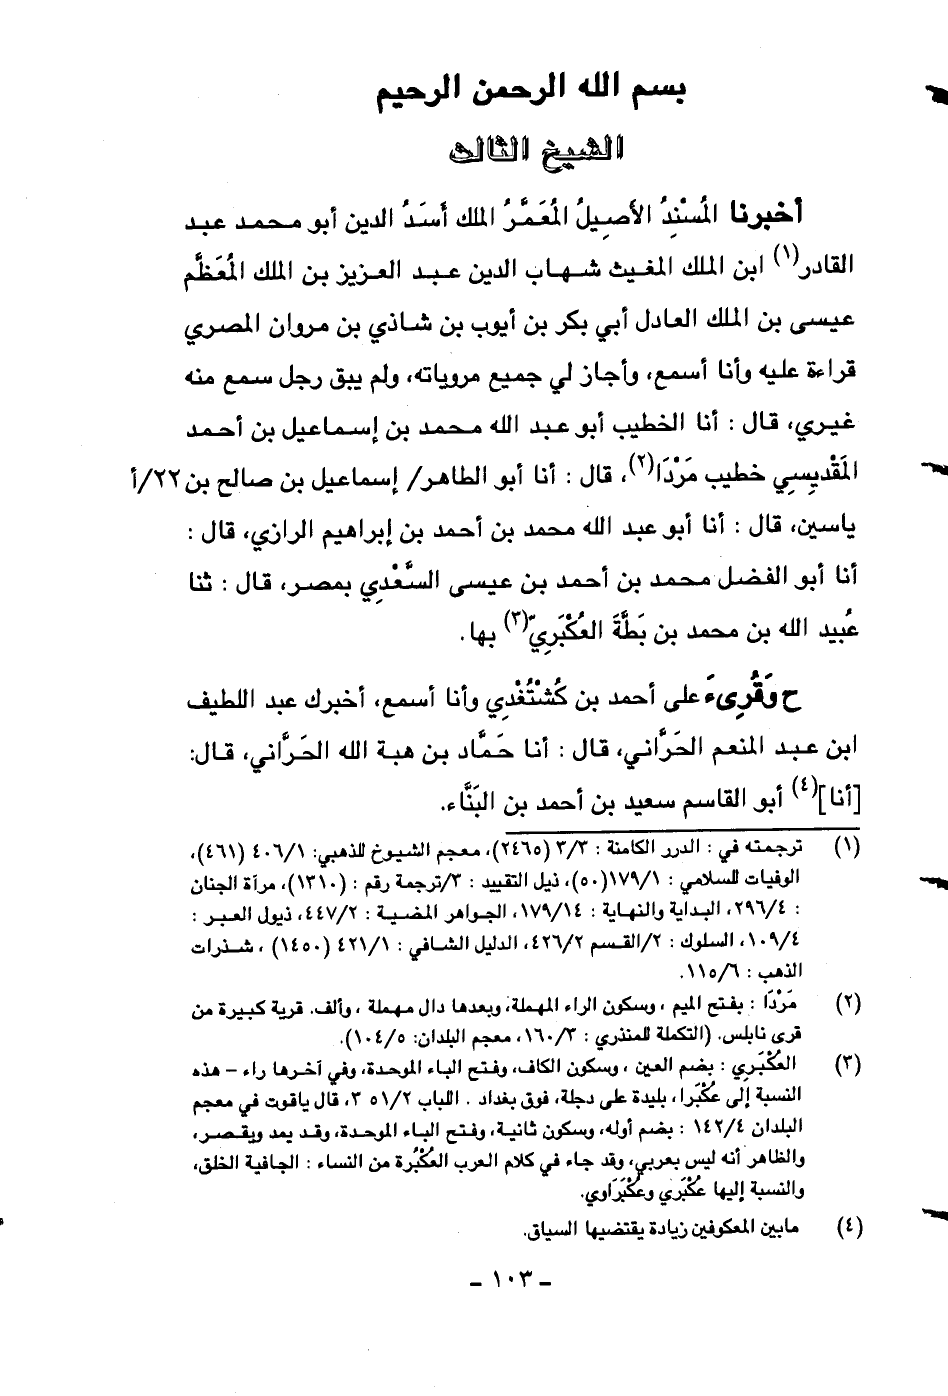 بسم الله الرحمن الرحيم
الشيخ الثالث
أخبرنا المُسْنِدُ الأصِيلُ المُعَمَّرُ الملك أسَدُ الدين أبو محمد عبد
القادر(١) ابن الملك المغيث شهاب الدين عبد العزيز بن الملك المُعَظَّم
عيسى بن الملك العادل أبي بكر بن أيوب بن شاذي بن مروان المصري
قراءة عليه وأنا أسمع، وأجاز لي جميع مروياته، ولم يبق رجل سمع منه
غيري، قال : أنا الخطيب أبو عبد الله محمد بن إسماعيل بن أحمد
المَقْدِسِي خطيب مَرْدَا(٢)، قال : أنا أبو الطاهر/ إسماعيل بن صالح بن ٢٢/أ
ياسين، قال : أنا أبو عبد الله محمد بن أحمد بن إبراهيم الرازي، قال :
أنا أبو الفضل محمد بن أحمد بن عيسى السَّعْدِي بمصر، قال : ثنا
عُبيد الله بن محمد بن بَطَّةَ العُكْبَرِيّ(٣) بها.
ح وَقُرِىءَ على أحمد بن كُشْتُغْدِي وأنا أسمع، أخبرك عبد اللطيف
ابن عبد المنعم الحَرَّاني، قال : أنا حَمَّاد بن هبة الله الحَرَّاني، قال:
[أنا](٤) أبو القاسم سعيد بن أحمد بن البَنَّاء.
(١) ترجمته في : الدرر الكامنة : ٣/٣ (٢٤٦٥)، معجم الشيوخ للذهبي: ٤٠٦/١ (٤٦١)،
الوفيات للسلامي : ١٧٩/١(٥٠)، ذيل التقييد : ٣/ترجمة رقم : (١٣١٠)، مرآة الجنان
: ٢٩٦/٤، البداية والنهاية : ١٧٩/١٤، الجواهر المضية : ٤٤٧/٢، ذيول العبر :
١٠٩/٤، السلوك : ٢/القسم ٤٢٦/٢، الدليل الشافي : ٤٢١/١ (١٤٥٠) ، شذرات
الذهب : ١١٥/٦.
(٢) مَرْدَا : بفتح الميم ، وسكون الراء المهملة، وبعدها دال مهملة ، وألف. قرية كبيرة من
قرى نابلس. (التكملة للمنذري : ١٦٠/٣، معجم البلدان: ١٠٤/٥).
(٣) العُكْبَرِي : بضم العين ، وسكون الكاف، وفتح الباء الموحدة، وفي آخرها راء – هذه
النسبة إلى عُكْبَرا، بليدة على دجلة، فوق بغداد . اللباب ٣٥١/٢، قال ياقوت في معجم
البلدان ١٤٢/٤ : بضم أوله، وسكون ثانية، وفتح الباء الموحدة، وقد يمد ويقصر،
والظاهر أنه ليس بعربي، وقد جاء في كلام العرب العُكْبُرة من النساء : الجافية الخلق،
والنسبة إليها عُكْبَري وعُكْبَرَاوي.
(٤) مابين المعكوفين زيادة يقتضيها السياق.
- ١٠٣ -